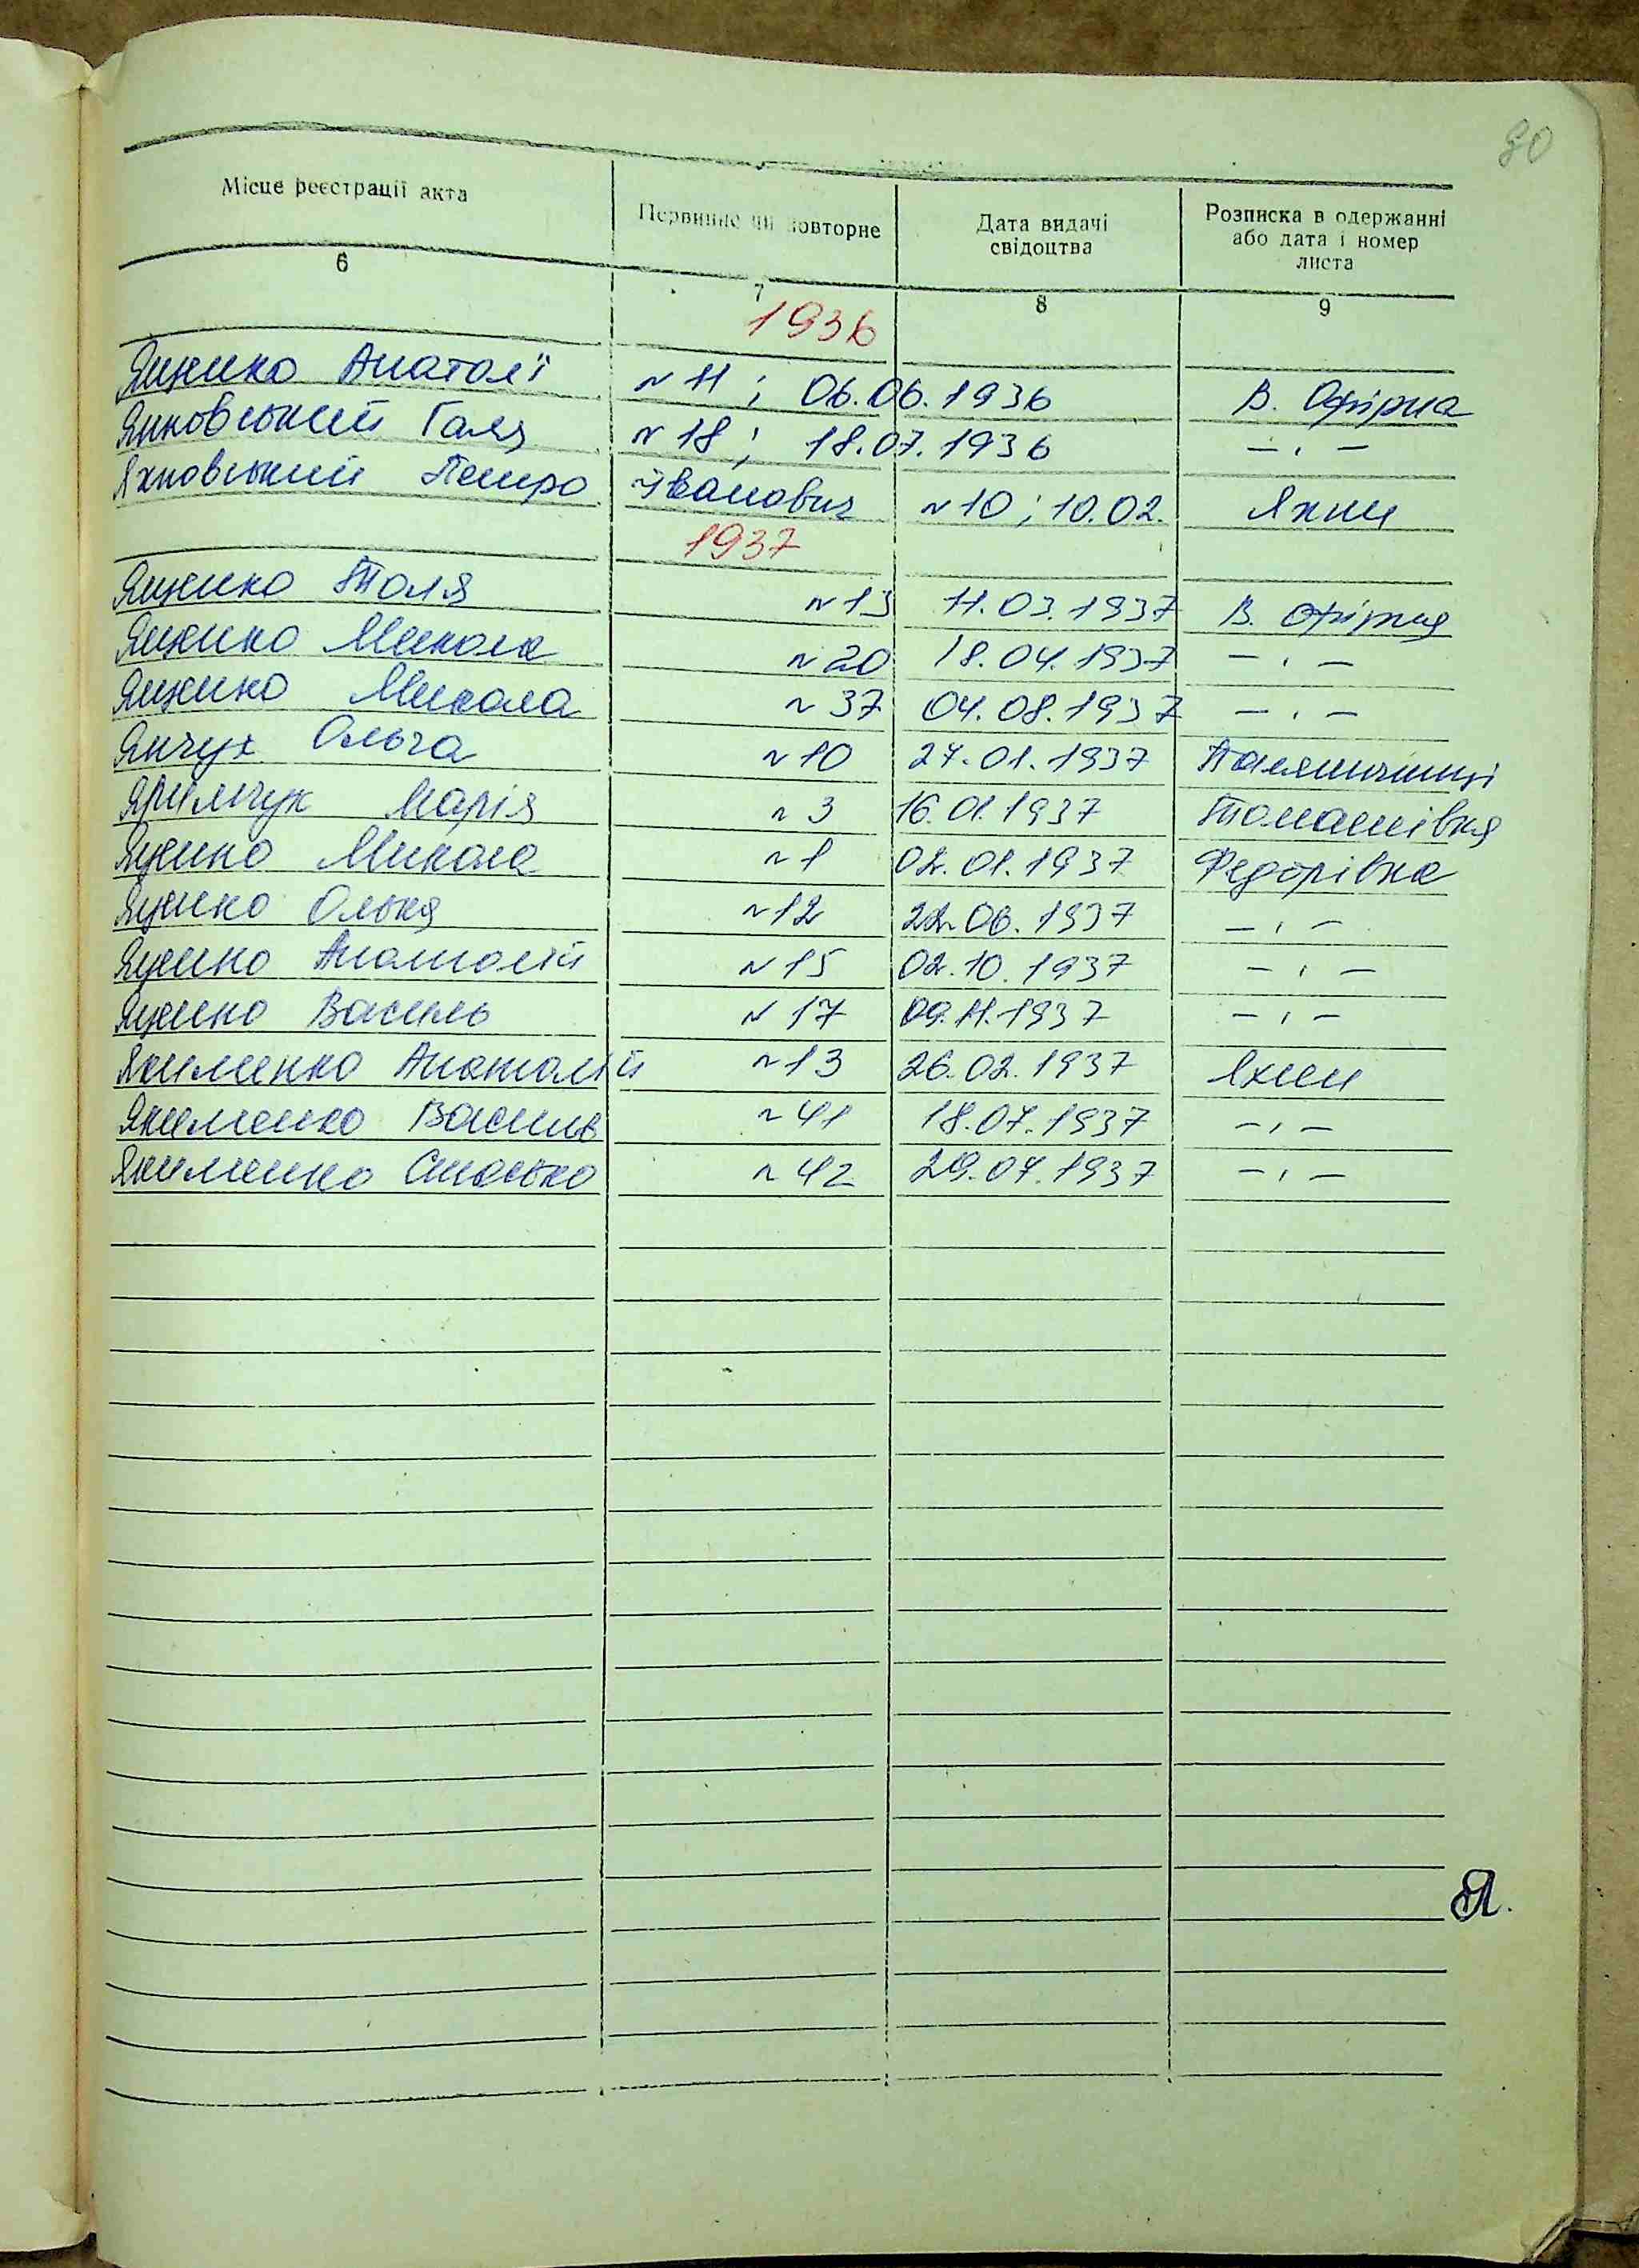 80
Місце реєстрації акта Первинне чи повторне Дата видачі свідоцтва Розписка в одержанні або дата і номер листа
6 7 8 9
1936
Ященко Анатолії № 11; 06.06.1936 В. Офірна
Янковський Галя № 18; 18.07.1936 — ' —
Яхновський Петро Іванович № 10; 10.02. Яхни
1937
Ященко Толя № 13 11.03.1937 В. Офірня
Ященко Микола № 20 18.04.1937 — ' —
Ященко Микола № 37 04.08.1937 — ' —
Янчук Ольга № 10 27.01.1937 Паляничинці
Яримчук Марія № 3 16.01.1937 Томашівка
Яценко Микола № 1 02.01.1937 Федорівка
Яценко Олька № 12 22.06.1937 — ' —
Яценко Анатолій № 15 02.10.1937 — ' —
Яценко Василь № 17 09.11.1937 — ' —
Якименко Анатолій № 13 26.02.1937 Яхни
Якименко Василь № 41 18.07.1937 — ' —
Якименко Стасько № 42 29.07.1937 — ' —
Я.